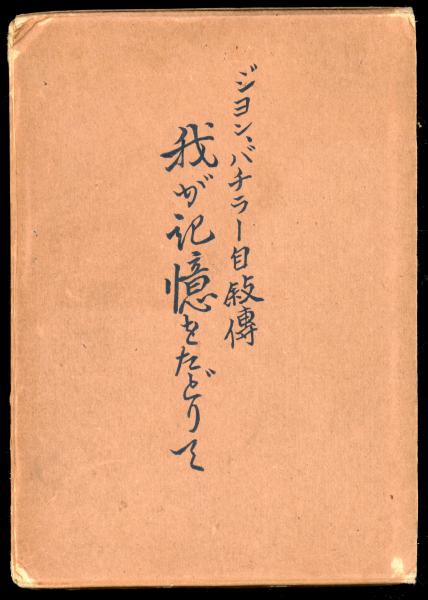 ジヨン、バチラー自敍傳
我が記憶をたどりて